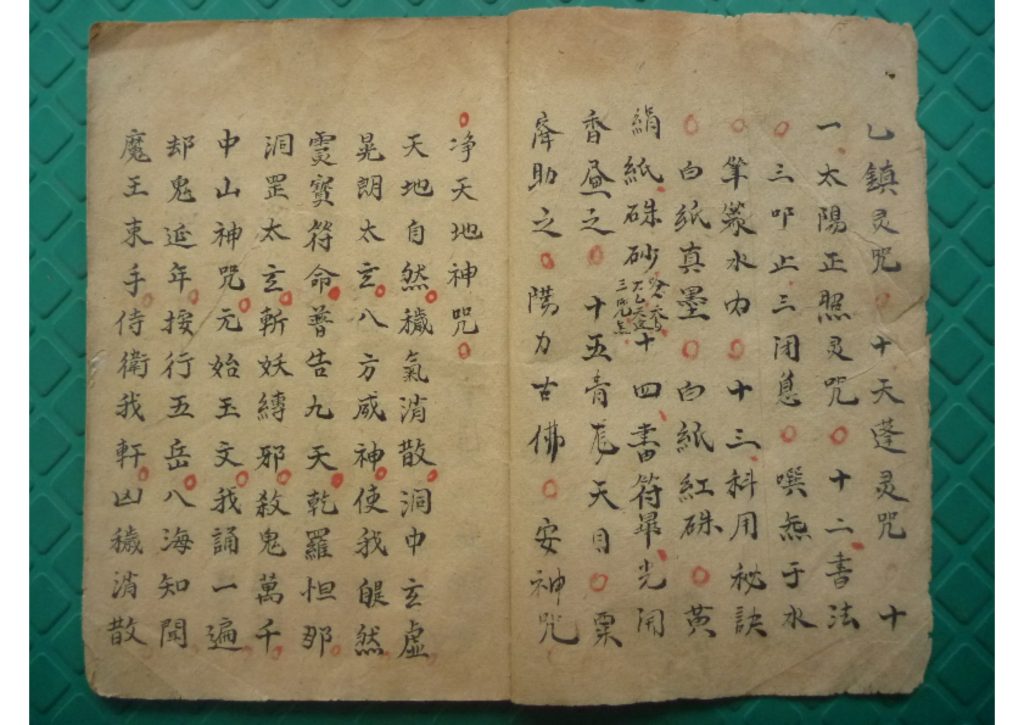 乚鎮灵咒○十天蓬灵咒　十
一太陽正照灵咒○十二書法
○三叩止三闭息○噀炁于水
○筆蘸水内○十三科用秘訣
○白紙真墨○白紙紅硃○黄
絹紙硃砂十四書符畢光開
香昼之○十五青尨天目○票
斉助之○陽力古佛○安神咒
○净天地神咒○
天地自然○穢氣消散○洞中玄虛
晃朗太玄○八方威神○使我眼然
霛寶符命○普告九天○乾羅怛那○
洞罡太玄○斬妖縛邪○殺鬼萬千○
中山神咒○元始玉文○我誦一遍○
却鬼延年○按行五岳○八海知聞
魔王束手○侍衛我軒○凶穢消散